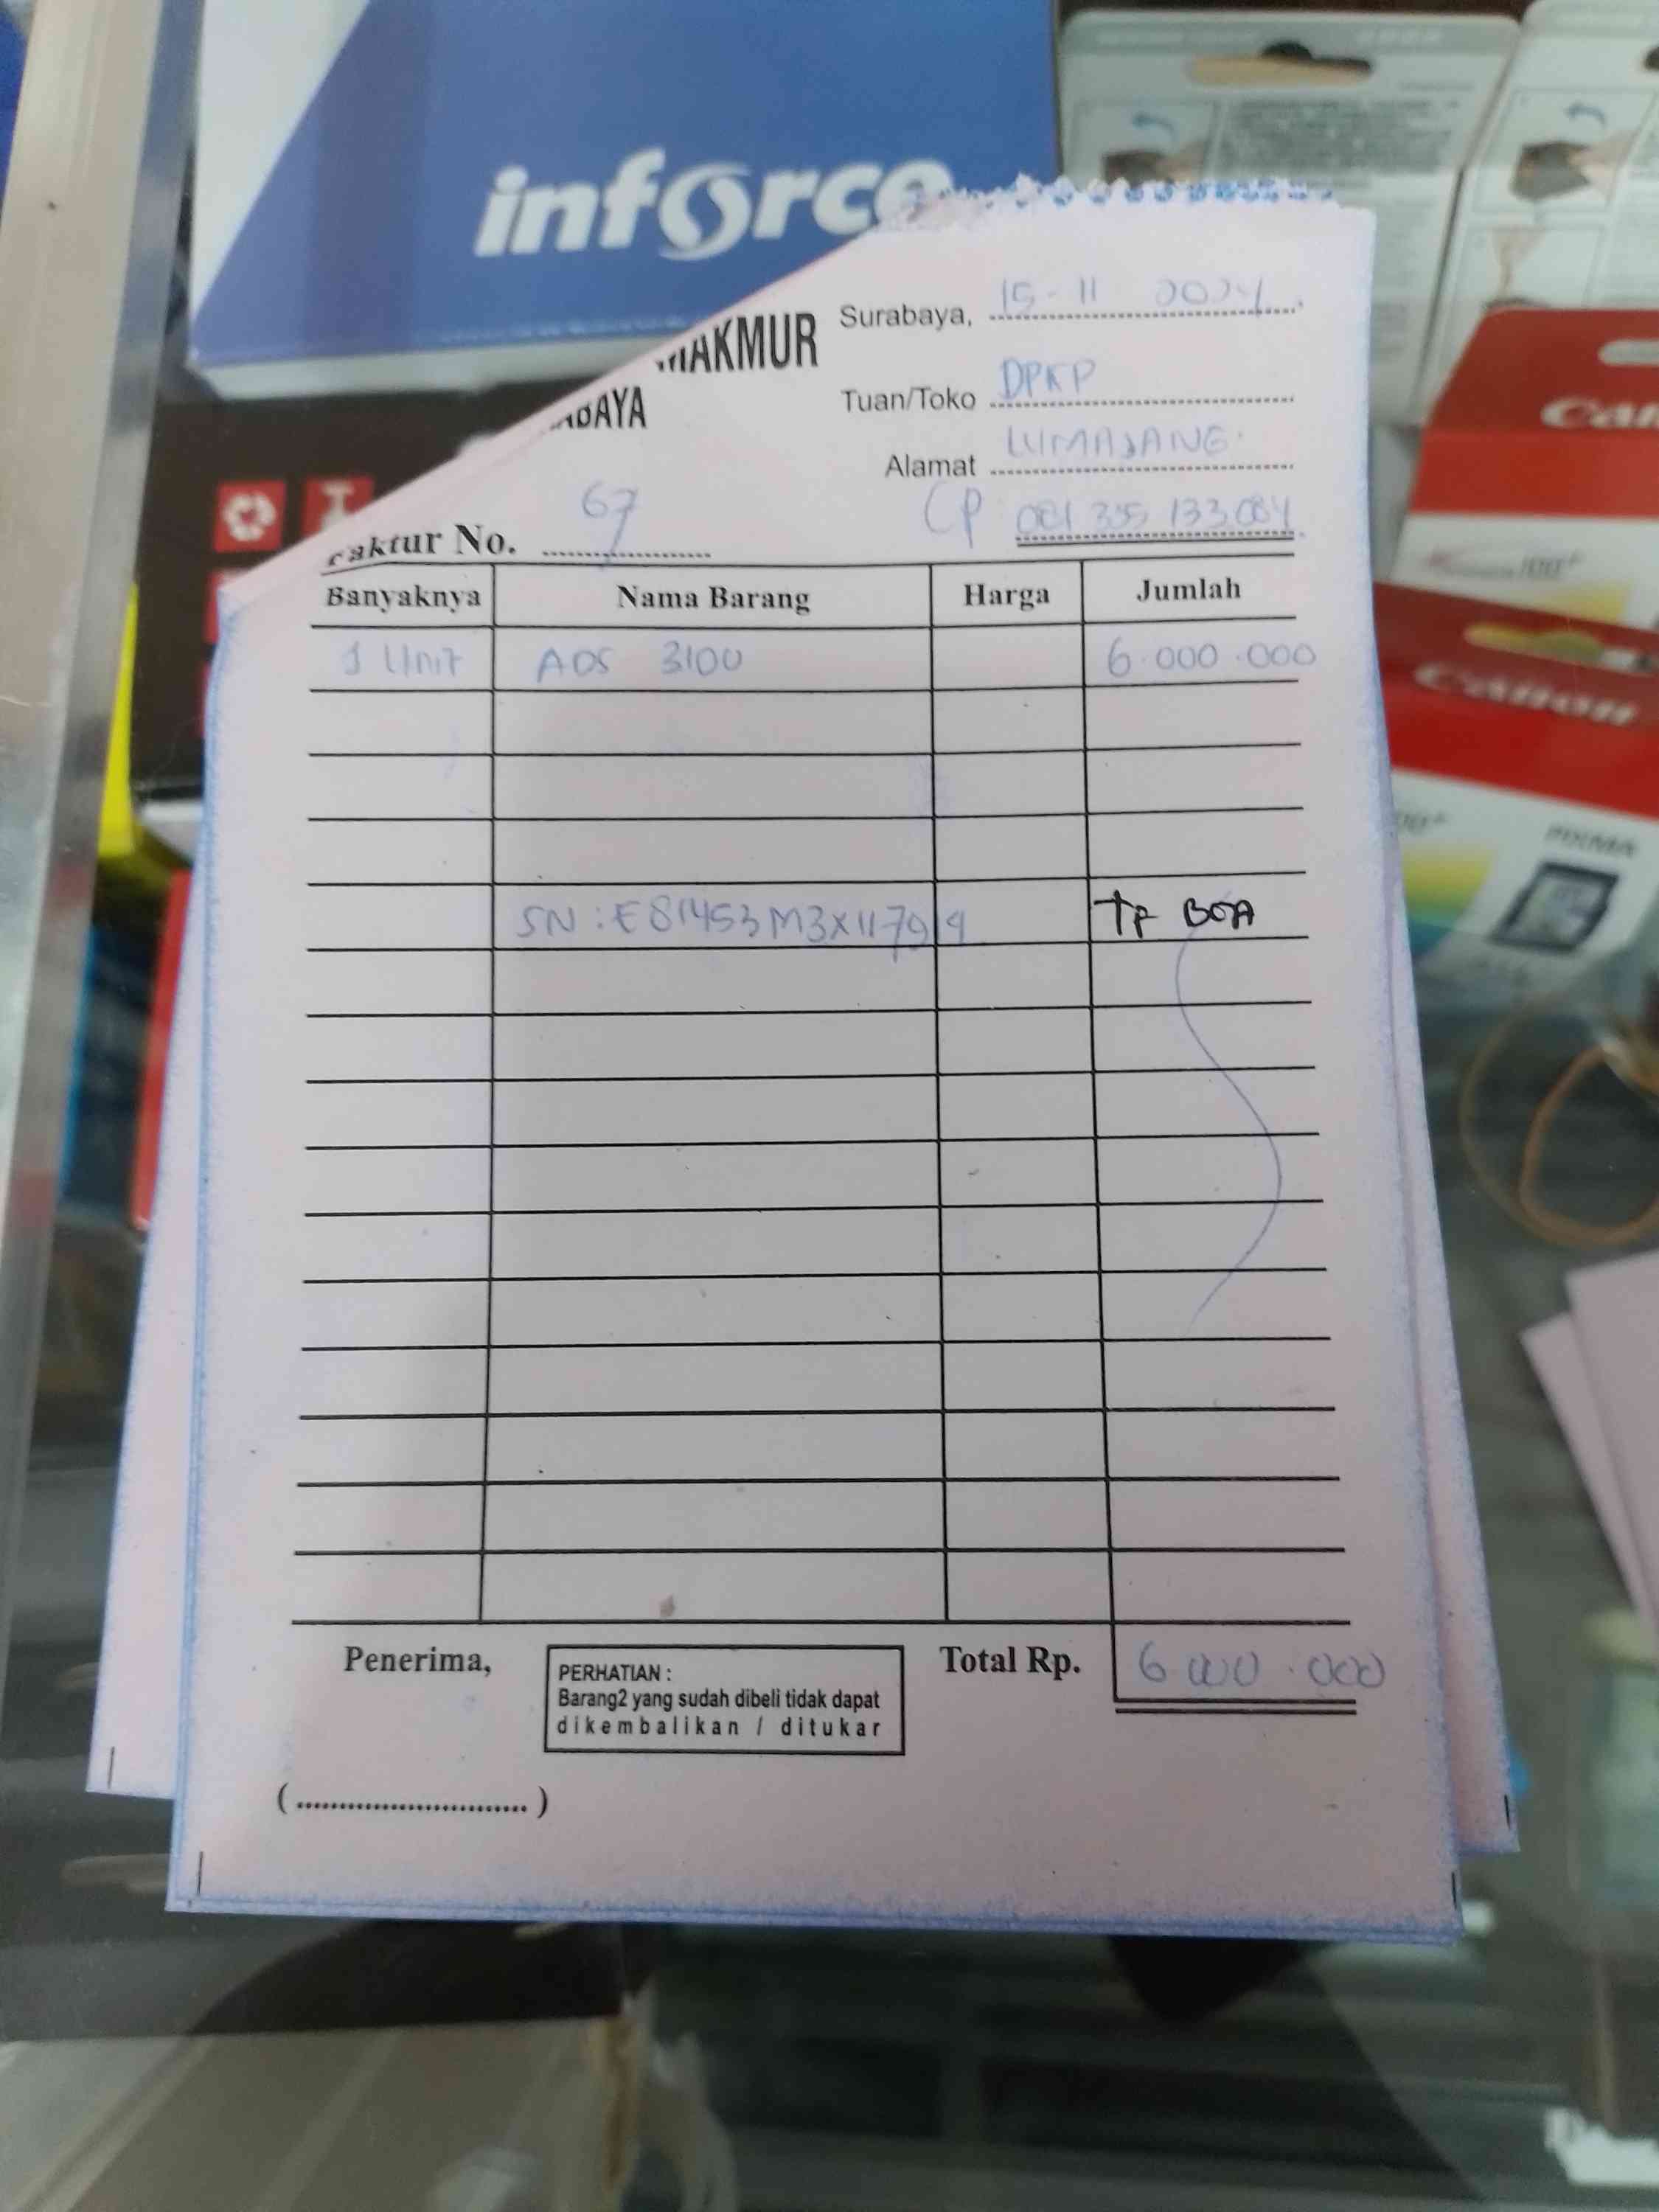 inforce
MAKMUR
ABAYA
Surabaya, 15-11 2024
Tuan/Toko DPKP
Alamat LUMAJANG
CP 081 335 133.084
Faktur No. 67
Banyaknya Nama Barang Harga Jumlah
1 Unit ADS 3100 6.000.000
SN : E81453M3X117919 TF BCA
Penerima,
PERHATIAN :
Barang2 yang sudah dibeli tidak dapat
dikembalikan / ditukar
Total Rp. 6.000.000
(............................)
Can
Canon
PIXMA